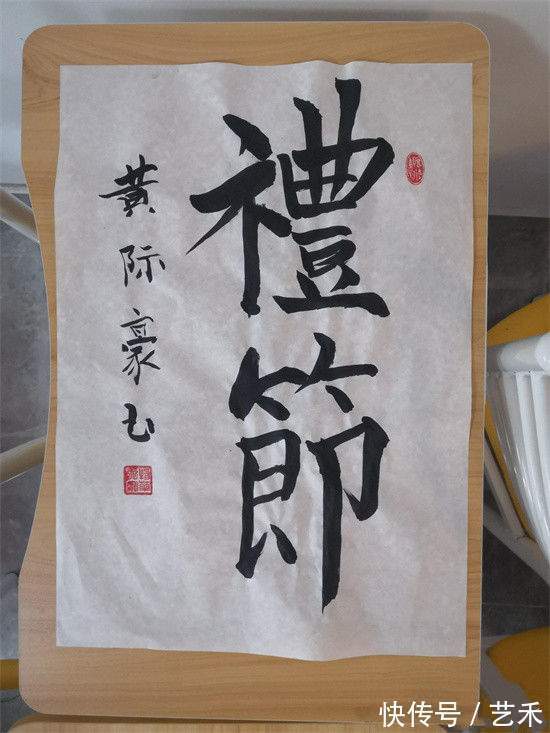 禮節
黄际豪书
快传号 / 艺禾